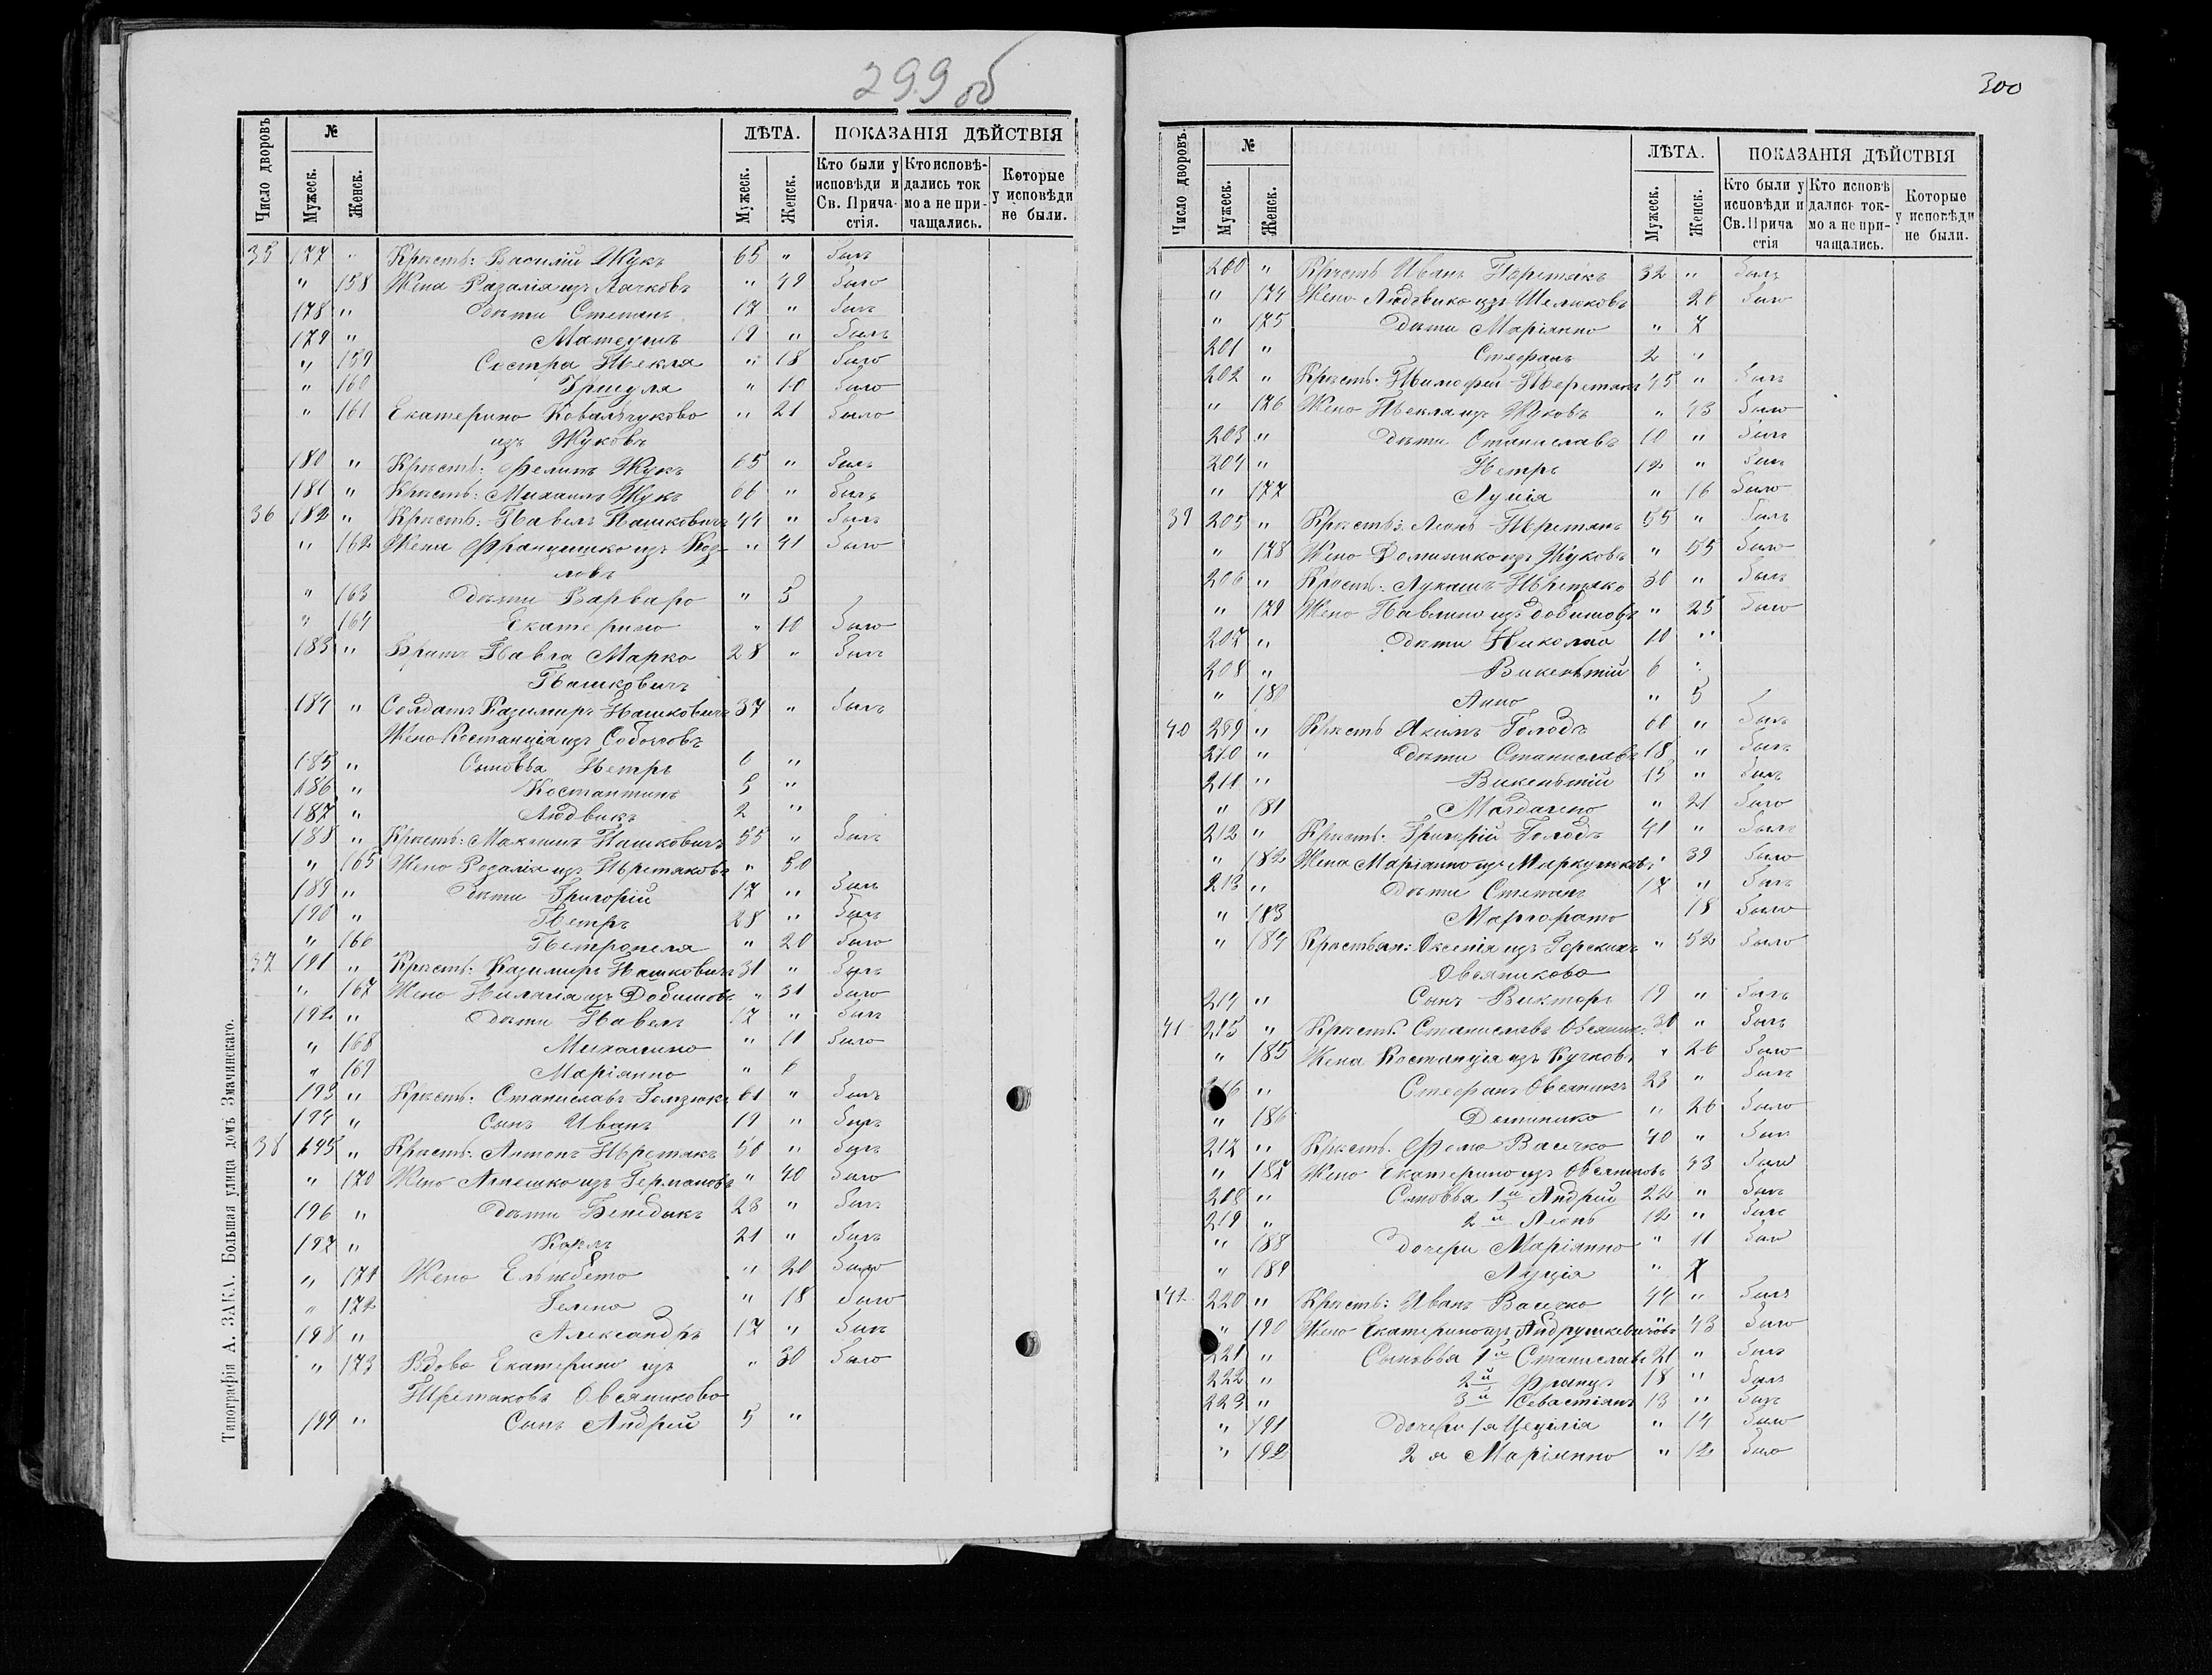 299 об
Число дворовъ
№
Мужеск.
Женск.
ЛѢТА.
Мужеск.
Женск.
ПОКАЗАНІЯ ДѢЙСТВІЯ
Кто были у исповѣди и Св. Прича-стія.
Кто исповѣ-дались ток мо а не при-чащались.
Которые у исповѣди не были.
35 177 " Крьсть: Василій Жукъ 65 " былъ
" 158 Жена Разалія изъ Лачковъ " 49 было
178 " Дѣти Степанъ 17 " былъ
179 " Матеушъ 19 " былъ
" 159 Сестра Текля " 18 было
" 160 Уршуля " 10 было
" 161 Екатерино Ковальчуково " 21 было
изъ Жуковъ
180 " Крьсть: Филипъ Жукъ 65 " былъ
181 " Крьсть: Михаилъ Жукъ 66 " былъ
36 182 " Крьсть: Павелъ Пашковичъ 44 " былъ
" 162 Жена Францишко изъ Коз- " 41 было
ловъ
" 163 Дѣти Варваро " 5
" 164 Екатерино " 10 было
183 " Братъ Павла Марко 28 " былъ
Пашковичъ
184 " Солдатъ Казимиръ Пашковичъ 37 " былъ
Жено Костанція изъ
185 " Сыновья Петръ 6 "
186 " Костантинъ 5 "
187 " Людвикъ 2 "
188 " Крьсть: Максимъ Пашковичъ 55 " былъ
" 165 Жено Розалія изъ Перетяковъ " 50
189 " Дѣти Григорій 17 " былъ
190 " Петръ 28 " былъ
" 166 Петронеля " 20 было
37 191 " Крьсть: Казимиръ Пашковичъ 31 " былъ
" 167 Жено изъ " 31 было
192 " Дѣти Павелъ 17 " былъ
" 168 Михалино " 11 было
" 169 Маріянно " 6
193 " Крьсть: Станиславъ 61 " былъ
194 " Сынъ Иванъ 19 " былъ
38 195 " Крьсть: Антонъ Перетякъ 50 " былъ
" 170 Жено Агнешко изъ Германовъ " 40 было
196 " Дѣти Бенедыкъ 23 " былъ
197 " Карлъ 21 " былъ
" 171 Жено Ельжбето " 20 было
" 172 Гелено " 18 было
198 " Александръ 17 " былъ
" 173 Вдова Екатерино изъ " 30 было
Перетяковъ Овсяниково
199 " Сынъ Андрей 5 "
Типографія А. ЗАКА. Большая улица домъ Змачинскаго.
300
Число дворовъ.
№
Мужеск.
Женск.
ЛѢТА.
Мужеск.
Женск.
ПОКАЗАНІЯ ДѢЙСТВІЯ
Кто были у исповѣди и Св. Прича стія
Кто исповѣ дались ток-мо а не при-чащались.
Которые у исповѣди не были.
200 " Крьсть Иванъ Перетякъ 32 " былъ
" 174 Жено Людвико изъ 28 было
" 175 Дѣти Маріянно " 7
201 " Стефанъ 2 "
202 " Крьсть: Тимофій Перетякъ 45 " былъ
" 176 Жено Текля изъ Жуковъ " 43 было
203 " Дѣти Станиславъ 10 " былъ
204 " Петръ 12 " былъ
" 177 Луція " 16 было
39 205 " Крьсть: Леонъ Перетякъ 55 " былъ
" 178 Жено Доминико изъ Жуковъ " 55 было
206 " Крьсть: Лукашъ Перетяко 30 " былъ
" 179 Жено Павлино изъ " 25 было
207 " Дѣти Николай 10 "
208 " Викентій 6 "
" 180 Анно " 5
40 209 " Крьсть Якимъ Голодъ 60 " былъ
210 " Дѣти Станиславъ 18 " былъ
211 " Викентій 15 " былъ
" 181 Магдалено " 21 было
212 " Крьсть: Григорій Голодъ 41 " былъ
" 182 Жена Маріянно изъ " 39 было
213 " Дѣти Степанъ 17 " былъ
" 183 Маргорато 18 было
" 184 Крестьян: Оксенія изъ Горскихъ " 52 было
Овсяниково
214 " Сынъ Викторъ 19 " былъ
41 215 " Крьсть: Станиславъ Овсяник: 30 " былъ
" 185 Жена Костанція изъ Кучковъ " 26 было
216 " Стефанъ Овсяникъ 23 " былъ
" 186 Доминико " 26 было
217 " Крьсть. Фома Васечко 40 " былъ
" 187 Жено Екатерино изъ Овсяниковъ 43 было
218 " Сыновья 1й Андрей 22 " былъ
219 " 2й Леонъ 12 " былъ
" 188 Дочери Маріянно " 11 было
" 189 Луція " 7
42 220 " Крьсть: Иванъ Васечко 44 " былъ
" 190 Жено Екатерино изъ Андрушкевичовъ 43 было
221 " Сыновья 1й Станиславъ 21 " былъ
222 " 2й Францъ 18 " былъ
223 " 3й Севастіянъ 13 " былъ
" 191 Дочери 1я Цецілія " 14 было
" 192 2я Маріянно " 12 было